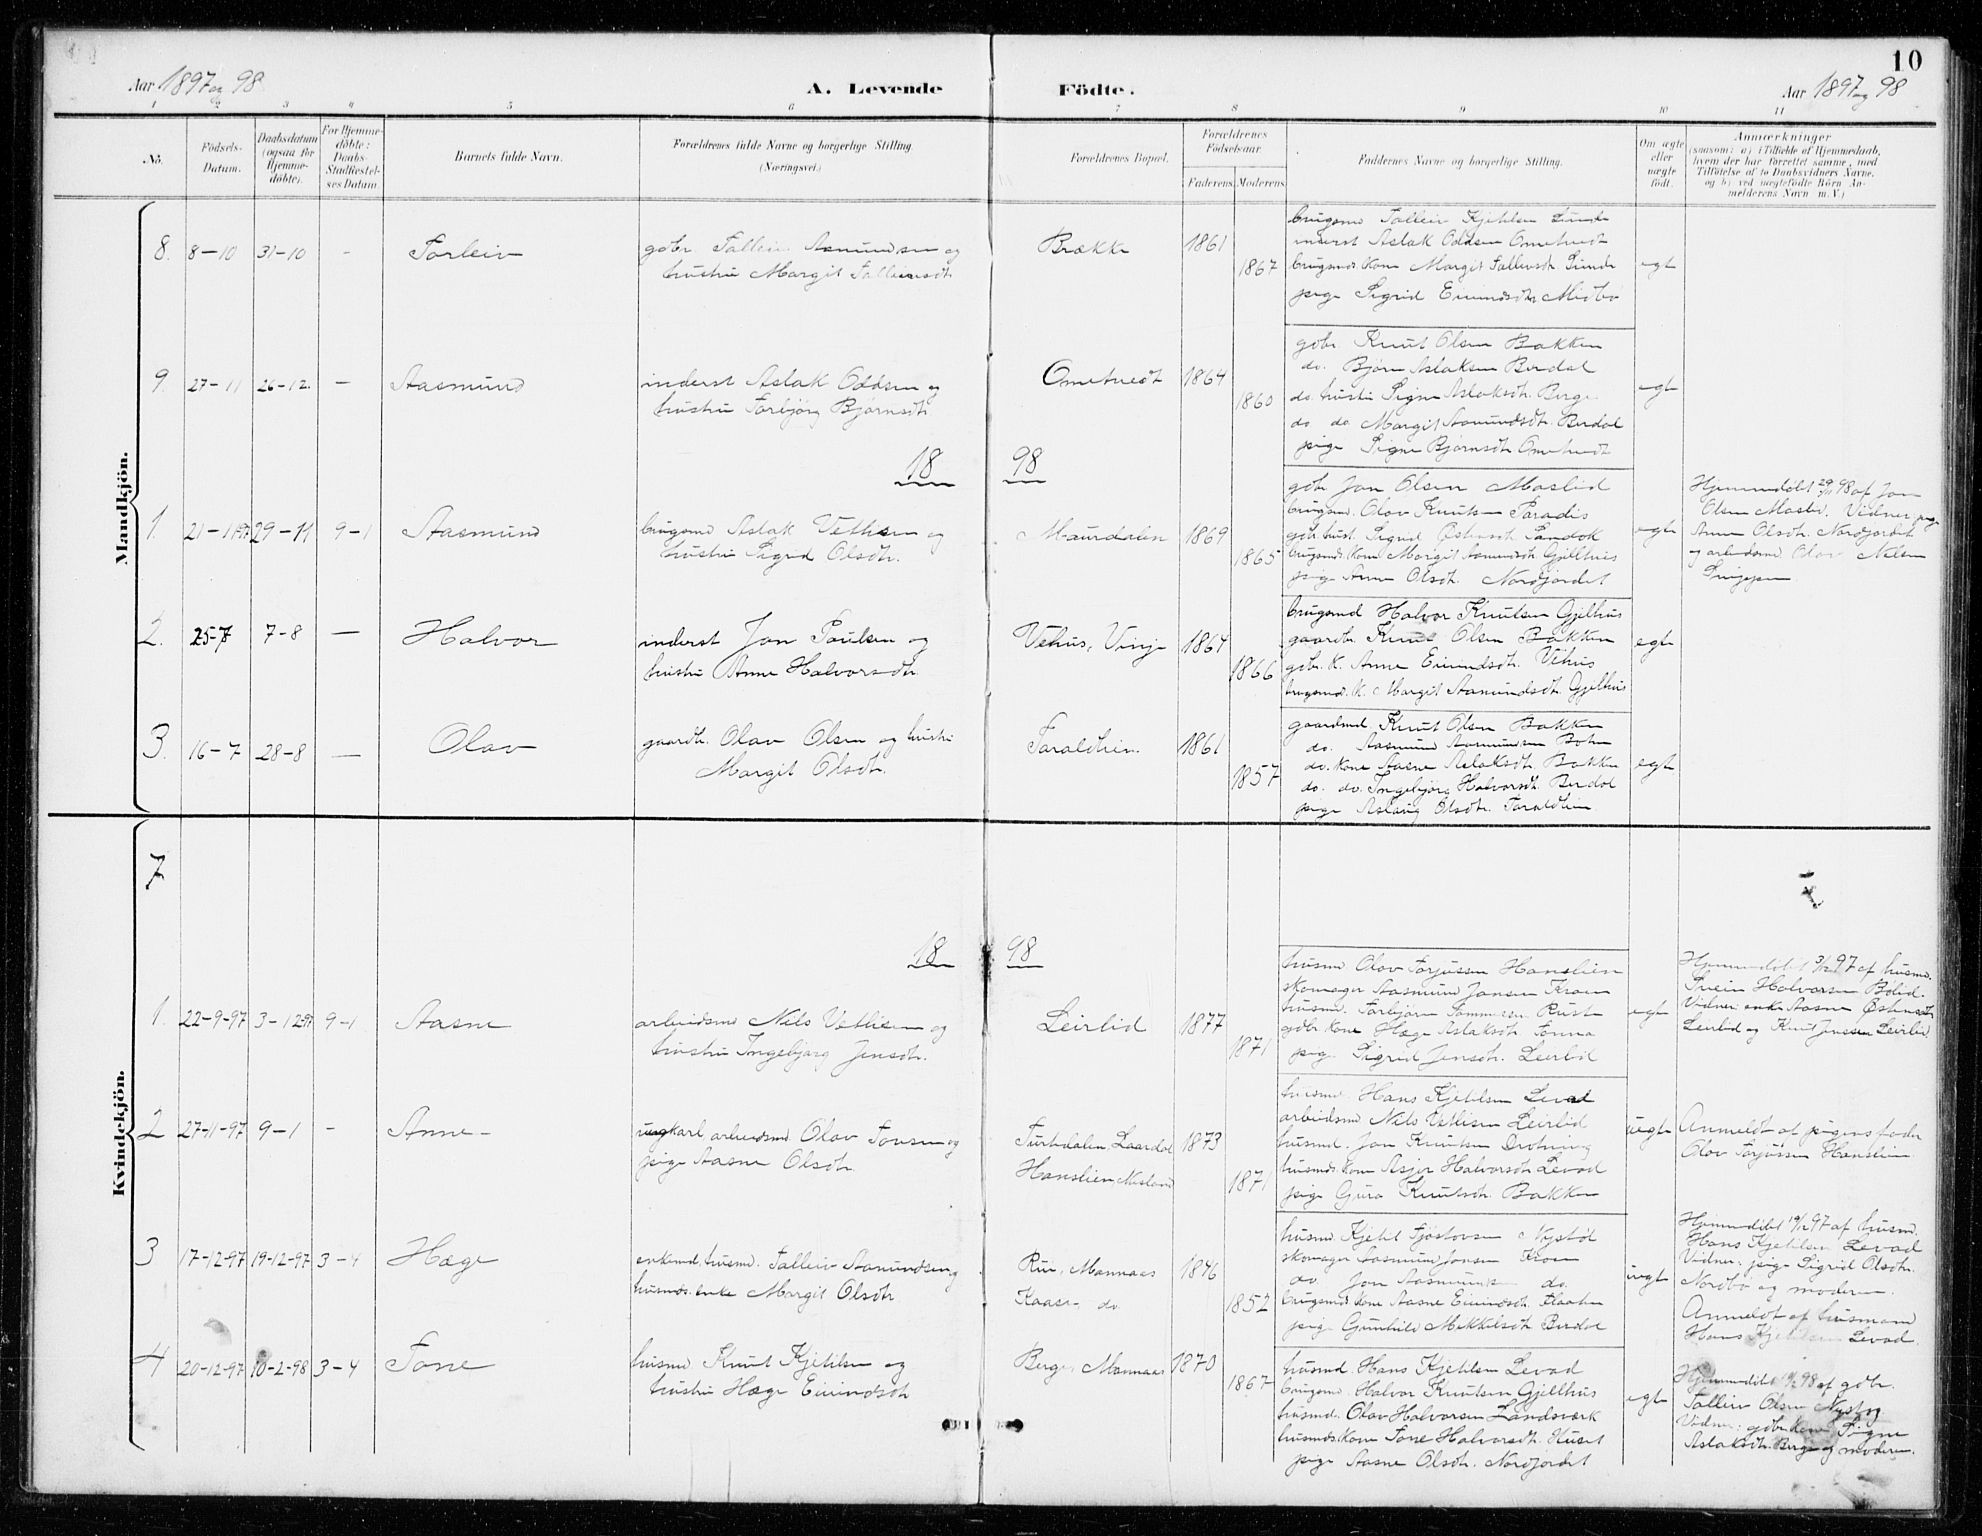 10
Aar 1897 og 98.
A. Levende Födte.
Aar 1897 og 98
1 2 3 4 5 6 7 8 9 10 11
No.
Födsels-
Datum.
Daabsdatum
(ogsaa for
Hjemme-
döbte).
For Hjemme-
döbte:
Daabs-
Stadfæstel-
ses Datum.
Barnets fulde Navn.
Forældrenes fulde Navne og borgerlige Stilling.
(Næringsvei.)
Forældrenes Bopæl.
Forældrenes
Födselsaar.
Faderens. Moderens.
Faddernes Navne og borgerlige Stilling.
Om ægte
eller
uægte
födt.
Anmærkninger
(saasom: a) i Tilfælde af Hjemmedaab,
hvem der har forrettet samme, med
Tilföielse af to Daabsvidners Navne.
og b) ved uægtefödte Börn An-
melderens Navn m. V.)
Mandkjön.
8. 8-10 31-10 - Torleiv
gdbr. Talleiv Asmundsen og
hustru Margit Talleivsdtr.
Brække 1861 1867
brugsmd Talleiv Kjetilsen Sunde
inderst Aslak Oddsen Ometvedt
brugsmds. kone Margit Talleivsdtr. Sunde
pige Sigrid Eivindsdtr. Midbø
egt
9. 27-11 26-12. - Aasmund
inderst Aslak Oddsen og
hustru Torbjørg Bjørnsdtr.
Ometvedt 1864 1860
gdbr. Knut Olsen Bakken
do. Bjørn Aslaksen Berdal
do. hustru Signe Aslaksdtr. Berge
do. do. Margit Aamundsdtr. Berdal
pige Signe Bjørnsdtr. Ometvedt
egt
18 98
1. 21-11 97 29-11 9-1 Aasmund
brugsmd Aslak Vetlesen og
hustru Sigrid Olsdtr.
Maurdalen 1869 1865
gdbr Jon Olsen Maslid
brugsmd. Olav Knutsen Paradis
gdbr. hust. Sigrid Østensdtr. Sandok
brugsmds. kone Margit Aamundsdtr. Gjellhus
pige Anne Olsdtr. Nordjordet
egt
Hjemmedøbt 29/11 98 af Jon
Olsen Maslid. Vidner: pige
Anne Olsdtr. Nordjordet
og arbeidsmd Olav Nilsen
2. 25-7 7-8 - Halvor
inderst Jon Paulsen og
hustru Anne Halvorsdtr.
Vehus, Vinje 1864 1866
brugsmd Halvor Knutsen Gjelhus
gaardbr. Knut Olsen Bakken
gdbr. K. Anne Eivindsdtr. Vehus
brugsmds. K. Margit Aamundsdtr. Gjelhus
egt
3. 16-7 28-8 - Olav
gaardbr. Olav Olsen og hustru
Margit Olsdtr.
Taraldlien 1861 1857
gaardmd. Knut Olsen Bakken
do. Aasmund Aasmundsen Bohn
do. kone Aasne Aslaksdtr. Bakken
do. do. Ingebjørg Halvorsdtr. Berdal
pige Aslaug Olsdtr. Taraldlien
egt
Kvindekjön.
7
18 98
1. 22-9-97 3-12 97 9-1 Aasne
arbeidsmd Nils Vetlesen og
hustru Ingebjørg Jensdtr.
Leirlid 1877 1871
husmd Olav Torjussen Hanslien
skomager Aasmund Jonsen Kroen
husmd. Torbjørn Tommesen Rust
gdbr. kone Hæge Aslaksdtr. Tonna
pige Sigrid Jensdtr. Leirlid
egt
Hjemmedøbt 3/12 97 af husmd.
Svein Halvorsen Bølid.
Vidner: enke Aasne Østensdtr
Leirlid og Knut Jenssen Leirlid.
2 27-11-97 9-1 - Anne
ungkarl arbeidsmd. Olav Tovsen og
pige Aasne Olsdtr.
Turtedalen, Laardal
Hanslien, Nesland
1873 1871
husmd. Hans Kjetilsen Levad
arbeidsmd Nils Vetlesen Leirlid
husmd. Jon Knutsen Drotning
husmds. kone Asjer Halvorsdtr Levad
pige Guro Knutsdtr. Bakken
uegte
Anmeldt af pigens fader
Olav Torjussen Hanslien.
3 17-12-97 19-12-97 3-4 Hæge
enkemd, husmd. Talleiv Aamundsen og
husmds. enke Margit Olsdtr
Rui, Mannaas
Kaasa - do.
1846 1852
husmd. Kjetil Fjøstovsen Nystøl
skomager Aasmund Jonsen Kroen
do. Jon Aasmundsen do.
brugsmds. kone Aasne Eivindsdtr. Flaaten
pige Gunhild Mikkelsdtr. Berdal
uegt
Hjemmedøbt 19/12 97 af husmd.
Hans Kjetilsen Levad
Vidner: pige Sigrid Olsdtr.
Nordbø og moderen.
Anmeldt af husmand
Hans Kjetilsen Levad.
4 20-12-97 10-2-98 3-4 Tone
husmd Knut Kjetilsen og
hustru Hæge Eivindsdtr
Berge, Mannaas 1870 1867
husmd. Hans Kjetilsen Levad
brugsmd. Halvor Knutsen Gjellhus
husmd. Olav Halvorsen Landsværk
husmds. kone Tone Halvorsdtr. Huset
pige Aasne Olsdtr. Nordjordet
egt
Hjemmedøbt 10/2 98 af gdbr.
Talleiv Olsen Nystog
Vidner: gdbr. kone Signe
Aslaksdtr. Berge og moderen.